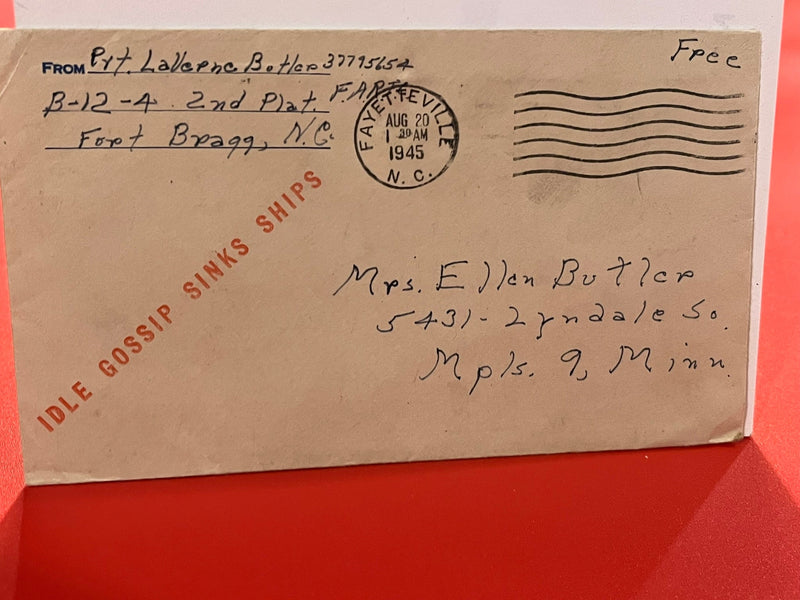 FROM Pvt. LaVerne Butler 37795654
B-12-4 2nd Plat. F.A.R.T.C.
Fort Bragg, N.C.
Free
FAYETTEVILLE
AUG 20
1 30 AM
1945
N. C.
IDLE GOSSIP SINKS SHIPS
Mrs. Ellen Butler
5431 - Lyndale So.
Mpls. 9, Minn.